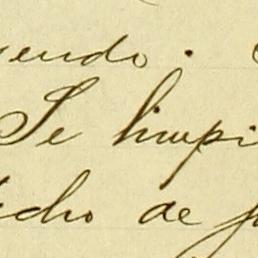 endo.
Se limpi
cho de